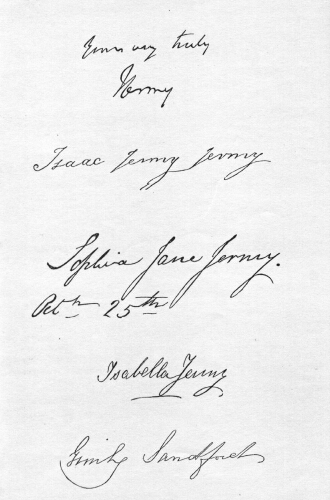 Yours very truly
IJermy
Isaac Jermy Jermy
Sophia Jane Jermy.
Octr 25th
Isabella Jermy
Emily Sandford